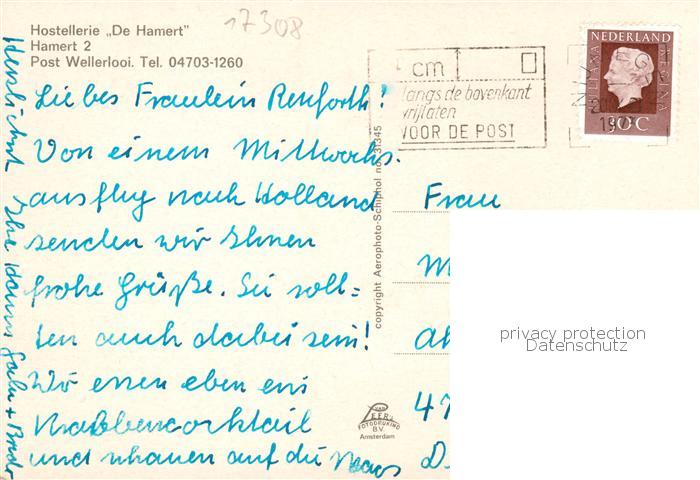 17308
Hostellerie „De Hamert"
Hamert 2
Post Wellerlooi. Tel. 04703-1260
cm
langs de bovenkant
vrijlaten
VOOR DE POST
NEDERLAND
JULIANA REGINA
90C
Liebes Fräulein Renforth!
Von einem Mittwochs-
ausflug nach Holland
senden wir Ihnen
frohe Grüße. Sie soll=
ten auch dabei sein!
Wir essen eben ein
Krabbencocktail
und schauen auf die Maas
Herzlichst Ihre
copyright Aerophoto-Schiphol no. 31345
Frau
M
47
D
VAN LEER's
FOTODRUKIND
B.V.
Amsterdam
privacy protection
Datenschutz